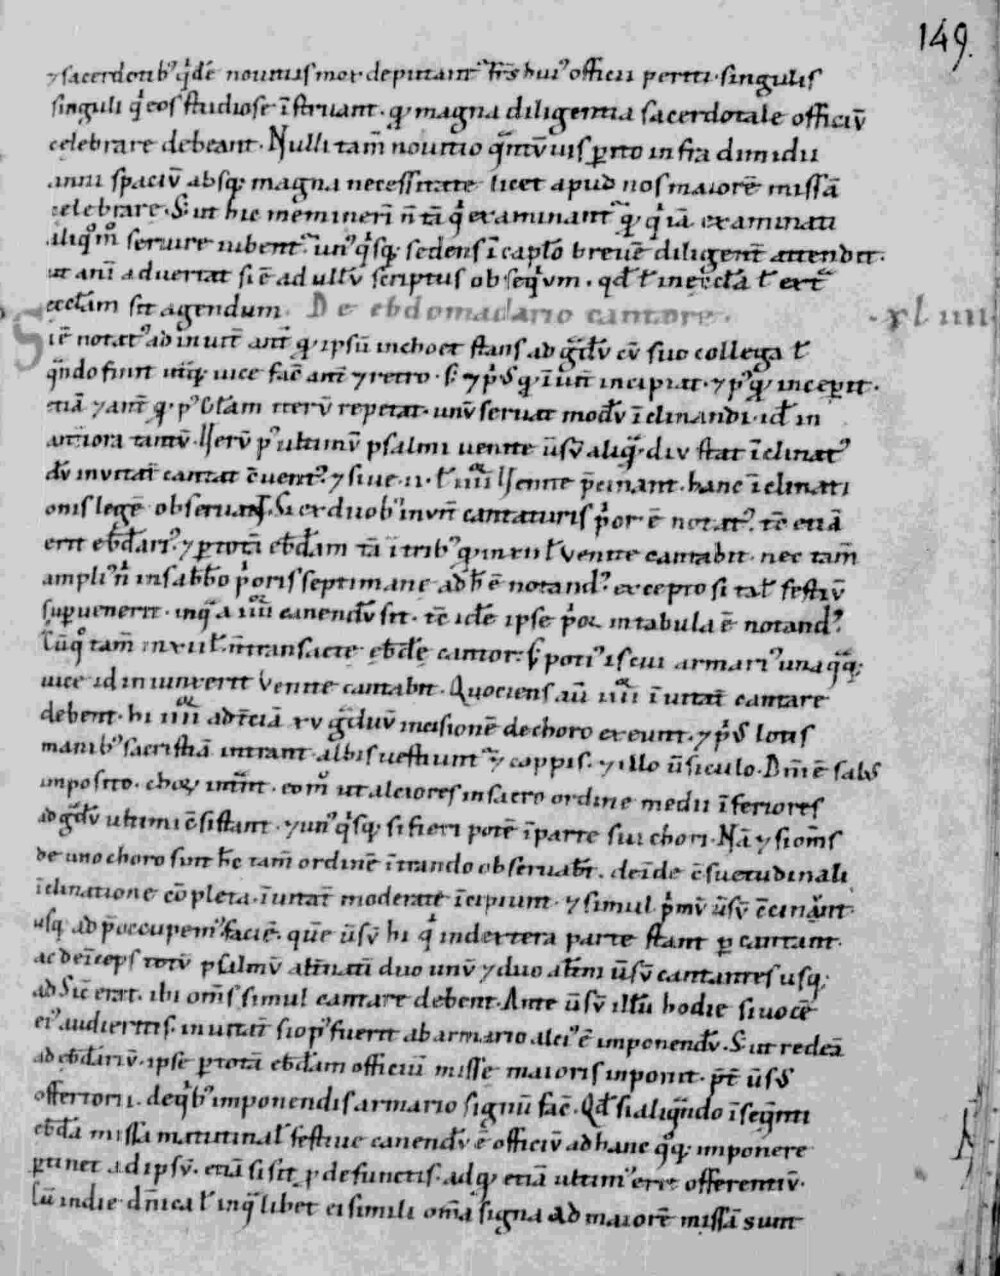 149.
⁊ sacerdotibꝰ q̇dē nouitiis mox deputantᷣ fr̄s huiꝰ officii periti. singuliſ
singuli q̇ eoſ studiose īstruant. qͥ magna diligentia sacerdotale officiū
celebrare debeant. Nulli tam̄ nouitio infra dimidii
anni spaciū absqꝫ magna necessitate licet apud nos maiorē missā
celebrare. S; ut hic meminerī n̄ tā q̇ examinantᷣ q̇ iā examinati
seruire iubentᷣ. unꝰ q̇sqꝫ sedens ī capl̄o breuē diligent̄ attendit.
ut anī aduertat si ē ad ullū scriptus obseq̇um. qd̄ ł in eccl̄a ł extᷓ
eccl̄am sit agendum. De ebdomadario cantore. xliiii.
Siē notatꝰ ad inuit̄ ant̄ ipsū inchoet stans ad gᷓdū cū suo collega ł
qᷓndo fiunt uice fac̄ ant̄ ⁊ retro. incipiat. ⁊ inceperit.
etiā ⁊ ant̄ pꝰ gl̄am iterū repetat. unū seruat modū īclinandi. id̄ in
anteriora tantū. Uerū pꝰ ultimū psalmi uenite ūsū diu stat īclinatꝰ
dū inuitat̄ cantat c̄uentꝰ. ⁊ siue. ii. ł. iiii. Uenite p̄cinant. hanc īclinati
om̄s legē obseruant. Si ex duobꝰ inuit̄ cantaturis p̍or ē notatꝰ. tc̄ etiā
erit ebd̄ariꝰ. ⁊ ꝑ totā ebd̄am tā ī tribꝰ qͣ in xii ł. Venite cantabit. nec tam̄
ampliꝰ in sabb̄o p̍oris septimane ad h̄ ē notandꝰ. excepto si tal̄ festiū
suꝑuenerit. inqͣ a iiiiᵒʳ canendū sit. tc̄ idē ipse p̍or in tabula ē notandꝰ.
Cū tam̄ in xii ł. transacte ebd̄e cantor. s; potiꝰ is cui armariꝰ una qͣqꝫ
uice id iniunxerit Venite cantabit. Quociens aū iiiiᵒʳ īuitat̄ cantare
debent. hi iiiiᵒʳ ad t̄ciā xv gᷓduū incisionē de choro exeunt. ⁊ p̍ꝰ lotis
manibꝰ sacristiā intrant. albis uestiuntᷣ ⁊ cappis. ⁊ illo ūsiculo. Dn̄e labꝰ
imposito. chorū intᷓnt. eomͦ ut alciores in sacro ordine medii īferiores
ad gᷓdū ultimi c̄sistant. ⁊ unꝰ q̇sqꝫ si fieri potē īparte sui chori. Nā ⁊ si om̄s
de uno choro sunt hc̄ tam̄ ordinē ītrando obseruabt̄. deīde c̄suetudinali
īclinatione cōpleta. īuitat̄ moderate īcipiunt. ⁊ simul p̍mū ūsū c̄cinunt.
usqꝫ ad p̄occupemꝰ faciē. quē ūsū hi q̇ indextera parte stant ꝑcantant.
ac deīceps totū psalmū altn̄atī duo unū ⁊ duo altm̄ ūsū cantantes usqꝫ
ad Sic̄ erat. ibi om̄s simul cantare debent. Ante ūsū illū hodie si uocē
eiꝰ audieritis. inuitat̄ si opꝰ fuerit ab armario alciꝰ ē imponendū. S; ut redeā
ad ebd̄ariū. ipse ꝑ totā ebd̄am officiū misse maioris inponit. p̄t̄ ūsꝰ
offertorii. de q̇bꝰ imponendis armario signū fac̄. Qd̄ si aliqᷓndo īseqn̄ti
ebd̄a missa matutinal̄ festiue canendū ē officiū ad hanc qͦqꝫ imponere
ꝑtinet ad ipsū. etiā si sit ꝓ defunctis. ad etiā ultimꝰ erit offerentiū.
Cū in die dn̄ica ł inqͣlibet ei simili om̄a signa ad maiorē missā sunt